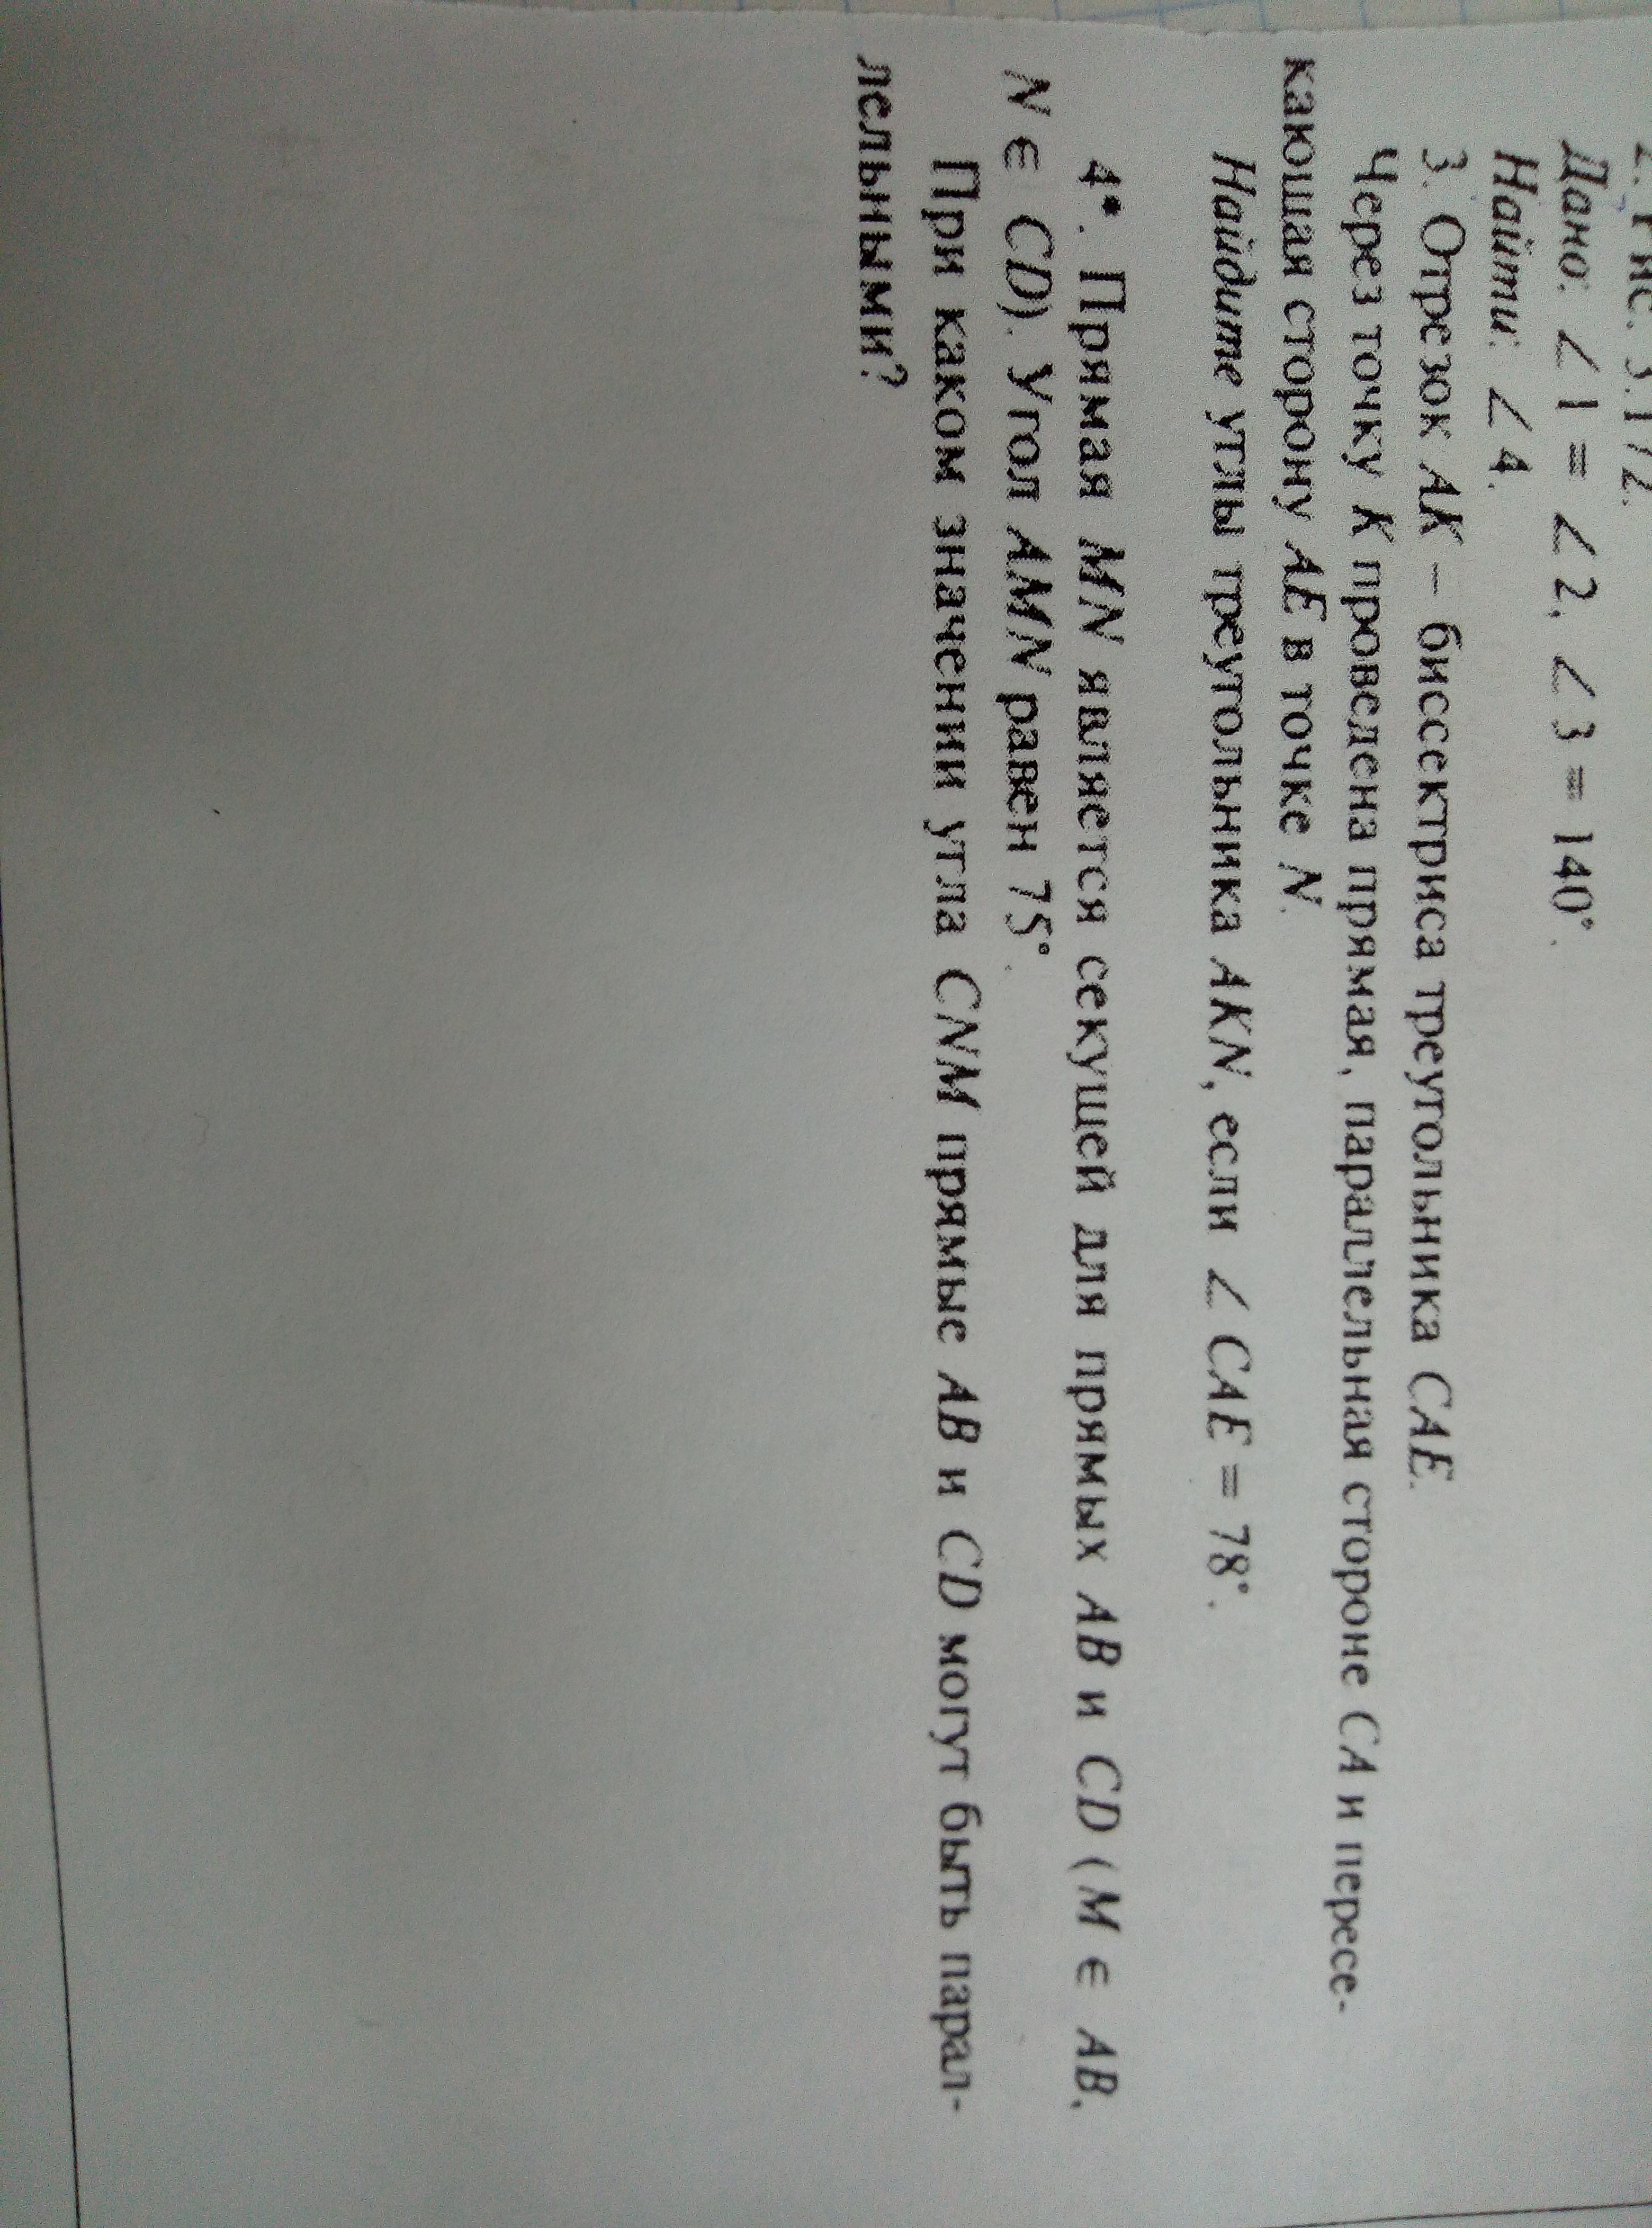 Дано: ∠1 = ∠2, ∠3 = 140°.
Найти: ∠4.
3. Отрезок AK – биссектриса треугольника CAE.
Через точку K проведена прямая, параллельная стороне CA и пересе-
кающая сторону AE в точке N.
Найдите углы треугольника AKN, если ∠CAE = 78°.
4*. Прямая MN является секущей для прямых AB и CD (M ∈ AB,
N ∈ CD). Угол AMN равен 75°.
При каком значении угла CNM прямые AB и CD могут быть парал-
лельными?